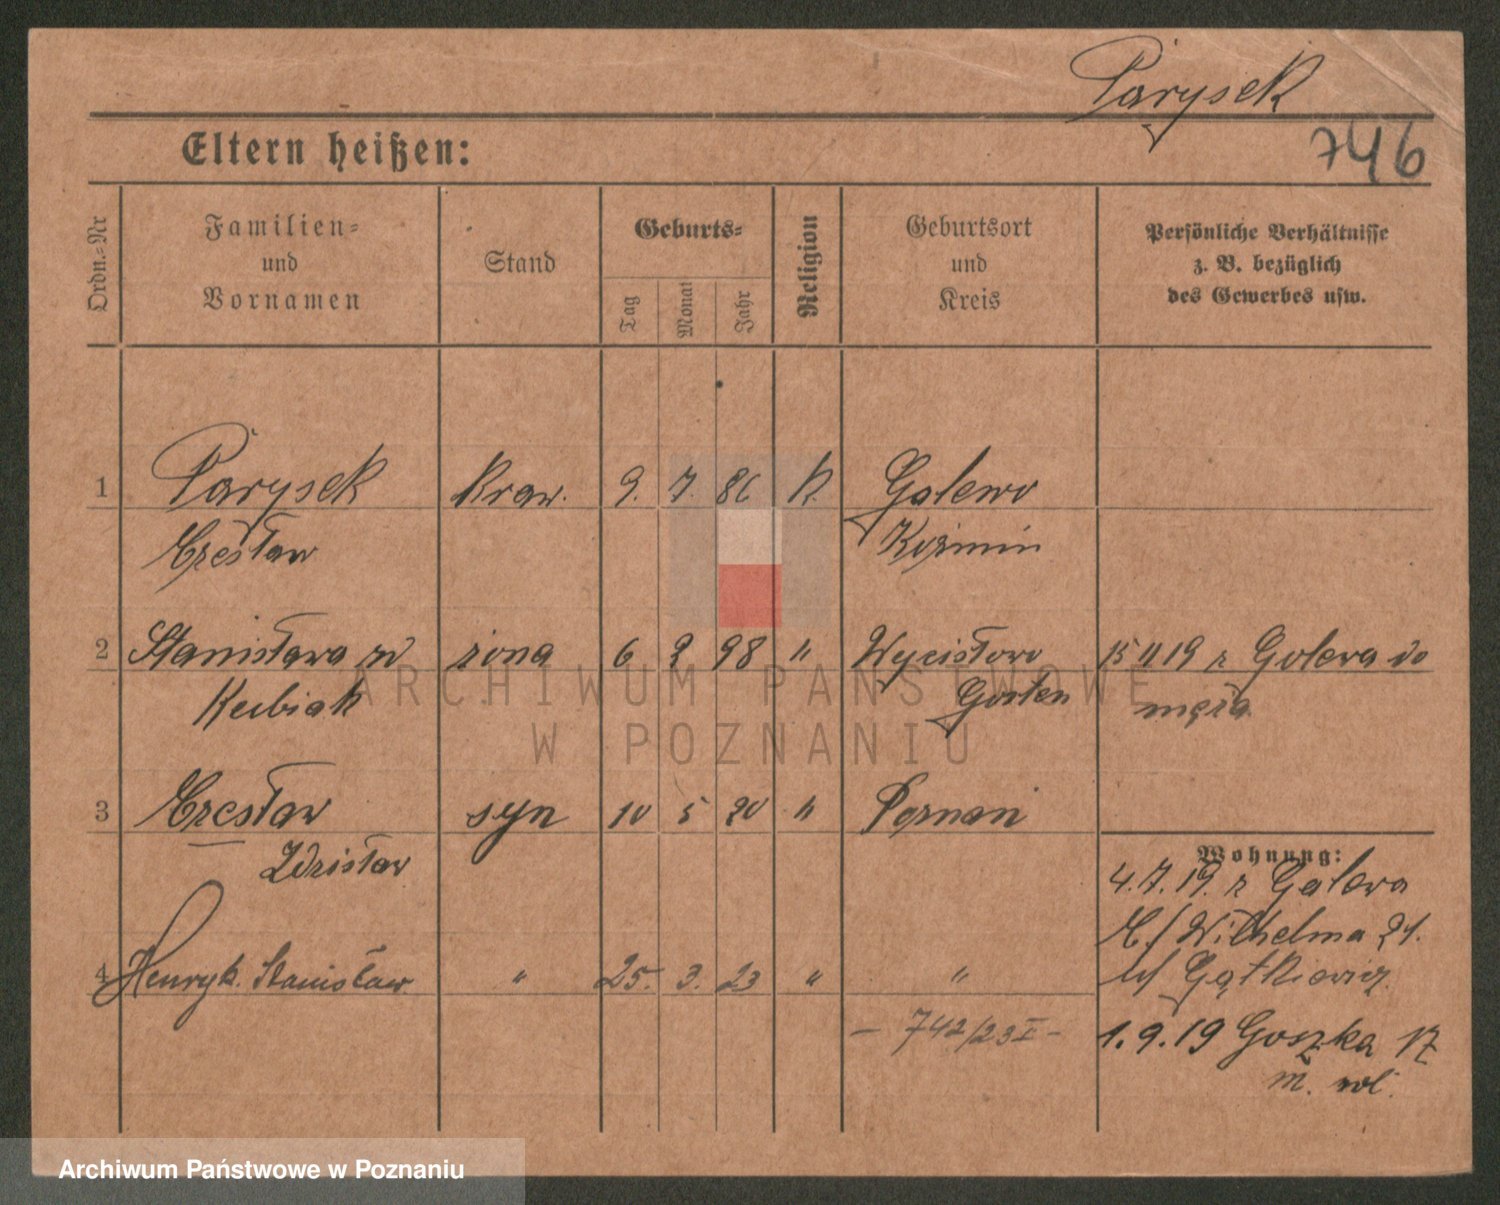 Parysek
746
Eltern heißen:
Ordn.-Nr
Familien- und Vornamen
Stand
Geburts-
Tag
Monat
Jahr
Religion
Geburtsort und Kreis
Persönliche Verhältnisse
z. B. bezüglich
des Gewerbes usw.
1 Parysek Kraw. 9. 7. 86 K. Golewo
Czesław Kozmin
2 Stanisława zd żona 6 2 98 " Wycisłowo 15 11 19 z Golewa do
Kubiak Gosten męża
3 Czesław syn 10 5 20 " Poznań
Wohnung:
Zdzisław 4.7.19. z Golewa
Wilhelma 21.
4 Henryk. Stanisław " 25. 3. 23 " "
— 742/23 I — 1.9.19 17
m. rol.
ARCHIWUM PAŃSTWOWE
W POZNANIU
Archiwum Państwowe w Poznaniu